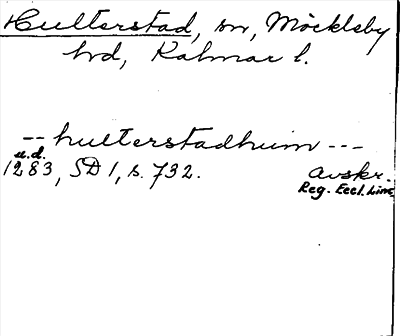 Hulterstad, sn, Möckleby
hd, Kalmar l.
-- hulterstadhum ---
u.d.
1283, SD 1, s. 732. avskr.
Reg. Eccl. Linc